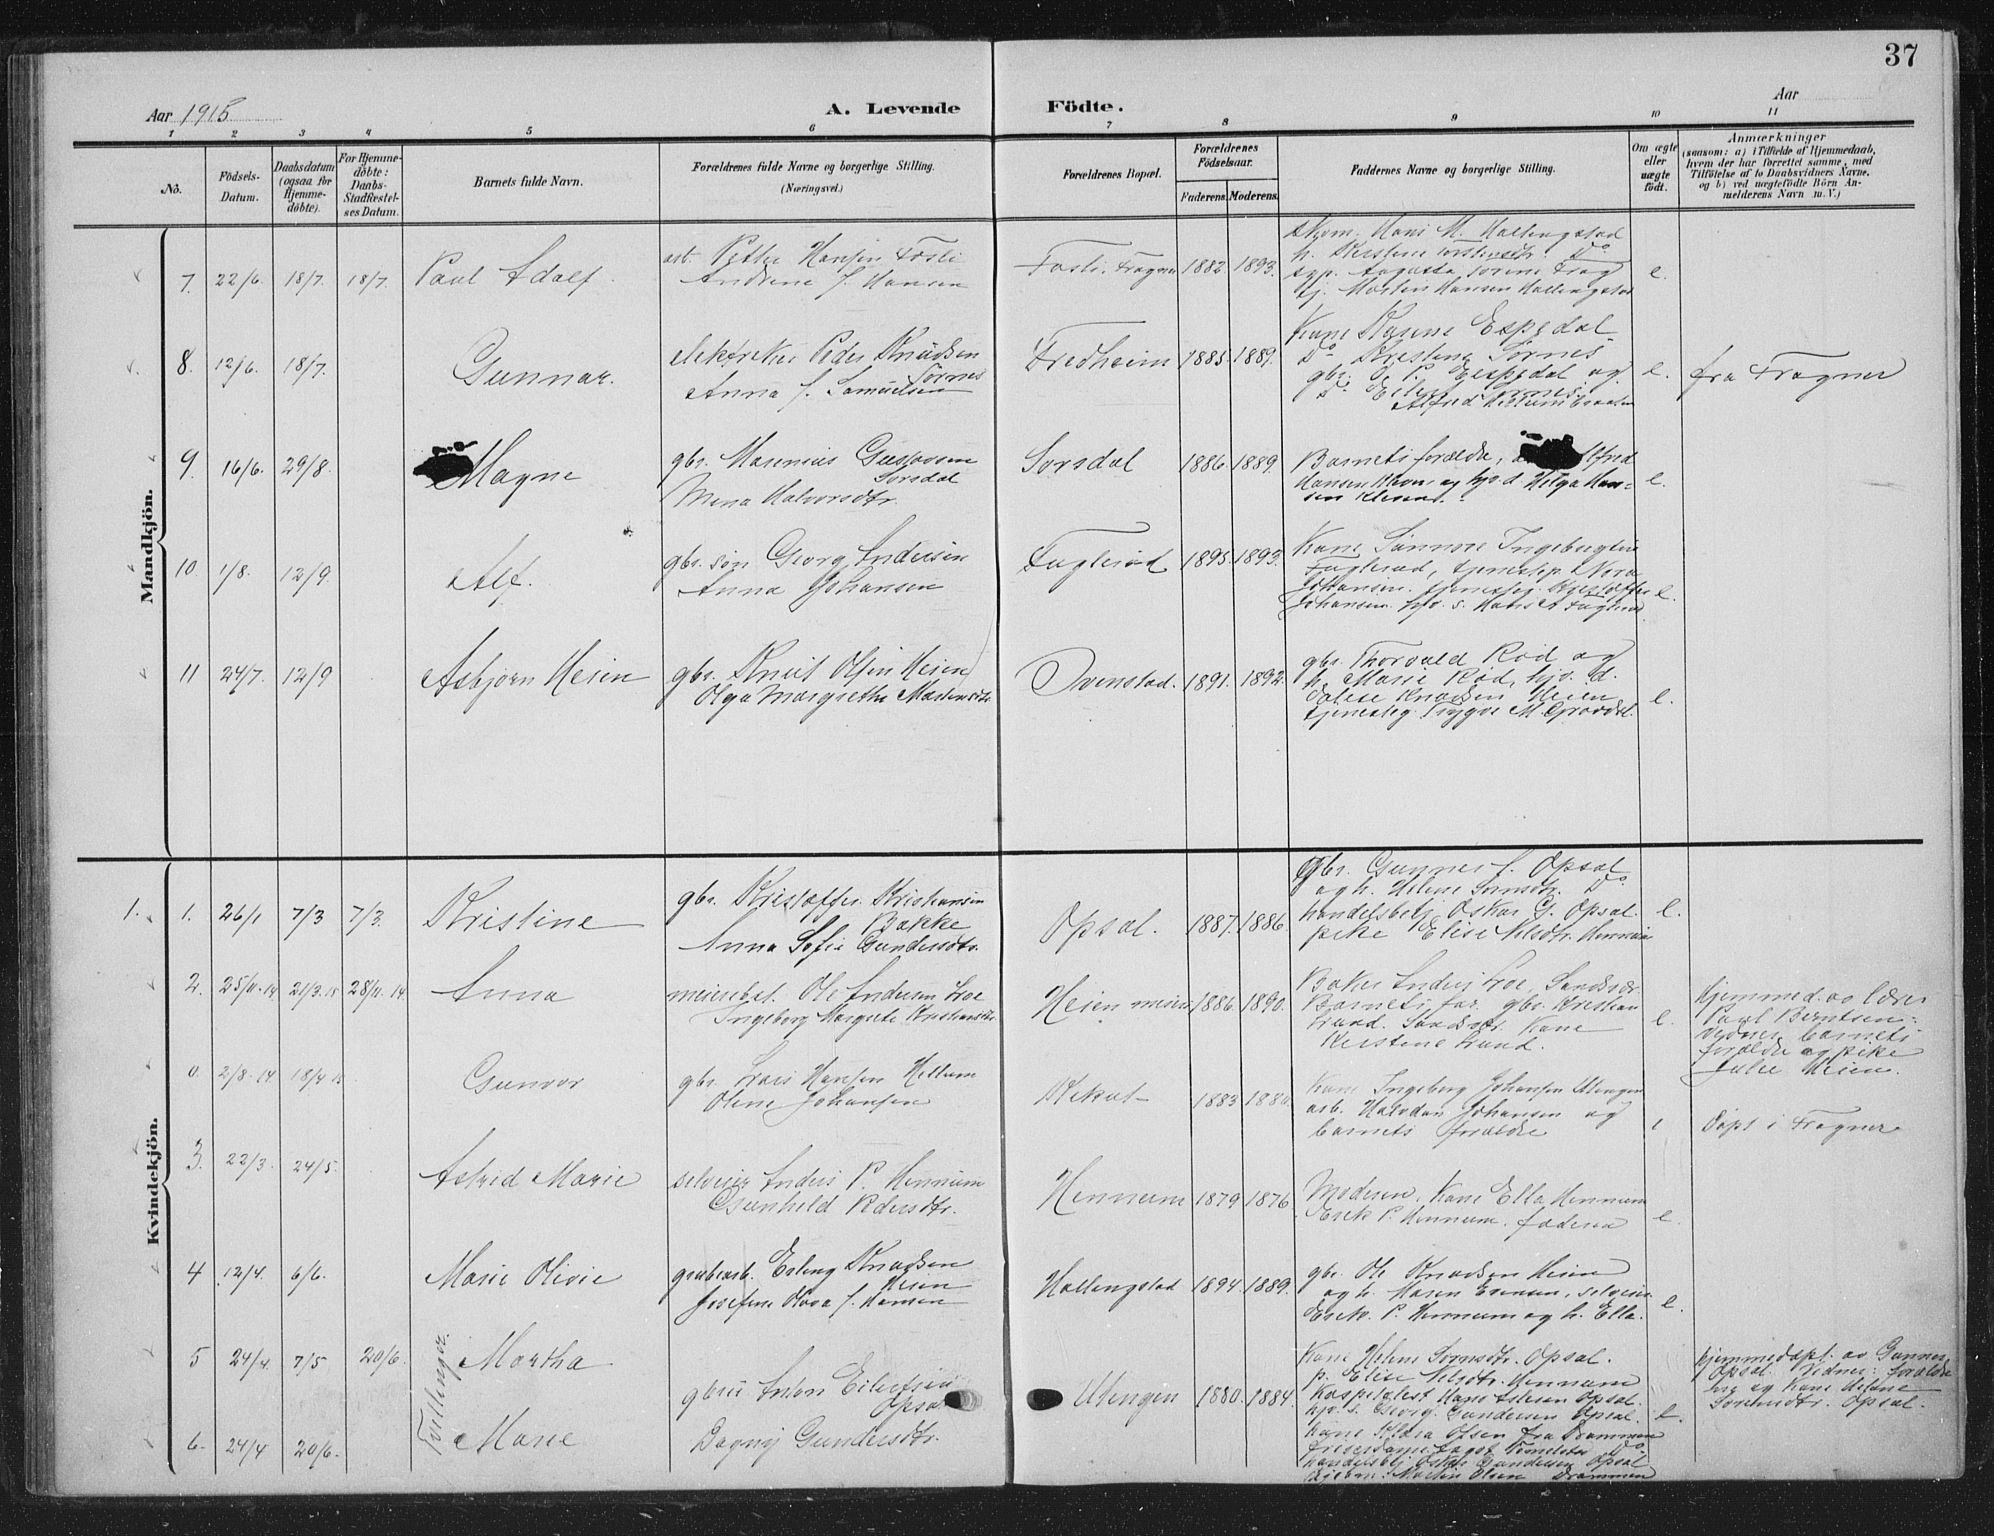 37
Aar 1915
A. Levende Födte.
Aar
1 2 3 4 5 6 7 8 9 10 11
No.
Födsels-
Datum.
Daabsdatum
(ogsaa for
Hjemme-
döbte).
For Hjemme-
döbte:
Daabs-
Stadfæstel-
ses Datum.
Barnets fulde Navn.
Forældrenes fulde Navne og borgerlige Stilling.
(Næringsvei.)
Forældrenes Bopæl.
Forældrenes
Födselsaar.
Faderens. Moderens.
Faddernes Navne og borgerlige Stilling.
Om ægte
eller
uægte
födt.
Anmærkninger
(saasom: a) i Tilfælde af Hjemmedaab,
hvem der har forrettet samme, med
Tilföielse af to Daabsvidners Navne.
og b) ved uægtefödte Börn An-
melderens Navn m. V.)
Mandkjön.
7. 22/6. 18/7. 18/7. Paul Adolf.
arb. Petter Hansen Fosli
Andrine J. Hansen
Fosli, Fragner 1882. 1893.
Hans M. Hallingstad
h. Kirstine Do
Augusta
Morten Hansen Hallingstad
e.
8. 12/6. 18/7. Gunnar.
elektriker Peder Knudsen
Sørnes
Anna J. Samuelsen
Fredheim 1885. 1889.
Kone Rasine Espedal
Do Kristine Sørnes
gbr. O. P. Espedal og
Do
Alfred
e. fra Fragner
9. 16/6. 29/8. Magne
gbr. Marenius Gustavsen
Sorsdal
Mina Halvorsdtr.
Sorsdal 1886. 1889.
Barnets forældre, Alfred
Hansen og hjv. d. Helga Han-
sen
e.
10. 1/8. 12/9. Alf.
gbr. søn Georg Andersen
Anna Johansen
Faglerød 1895. 1893.
Kone
Faglerød, tjenestep. Nora
Johansen. tjenesteg. Kristoffer
Johansen hjv. s. Hans A.
e.
11 24/7. 12/9 Asbjørn Heien
gbr. Knut Olsen Heien
Olga Margrethe
Ovenstad. 1891. 1892.
gbr. Thorvald Rød og
h. Marie Rød, hjv. d.
Knudsen Heien
tjenesteg. Trygve M.
e.
Kvindekjön.
1. 1. 26/1 7/3 7/3. Kristine
gbr. Kristoffer Kristiansen
Bakke
Anna Sofie Gundersdtr.
Opsal. 1887. 1886.
gbr. Gunner J. Opsal
og h. Helene Do
handelsbetj. Oskar G. Opsal.
pike Elise Nilsdtr. Hennum
e.
2. 25/11.14 21/3.15 28/11.14. Anna
meieribst. Ole Andersen
Ingeborg Margrete Kristiansdtr.
Heien meieri 1886. 1890.
Baker Anders
Barnets far. gbr. Kristian
Lund. Kone
Kirstine Lund.
e.
Hjemmed. av lærer
Paul Berntsen.
Vidner barnets
forældre og pike
Julie Heien.
0. 2/8.14 18/4 15 Gunvor
gbr. Lars Hansen Hellum
Oline Johansen
1883
Kone Ingeborg Johansen Utengen
arb. Halvdan Johansen og
barnets forældre
Døpt i Fragner
3. 22/3. 24/5. Astrid Marie
selveier Anders P. Hennum
Gunhild Pedersdtr.
Hennum 1879 1876.
Moderen, Kone Ella Hennum
Erik P. Hennum. faderen
e.
4 12/4. 6/6. Marie Olivie
grubearb. Erling Knudsen
Heien
Josefine Olava J. Hansen
Hallingstad 1894. 1889.
gbr. Ole Knudsen Heien
og h. Maren Evensen, selveier
Erik P. Hennum og h. Ella.
e.
Tvillinger.
5 24/4. 7/5 20/6. Martha
6. 24/4 20/6. Marie
gbr. Anton Eilertsen
Opsal
Dagny Gundersdtr.
Utengen 1880. 1884.
Kone Helene Opsal.
p. Elise Nilsdtr. Hennum
Hans Opsal.
hjv. s. Georg Gundersen Opsal.
Kone Olsen fra Drammen
handelsbetj. Oskar Gundersen Opsal
Martin Olsen Drammen
e.
Hjemmedøpt av Gunner
Opsal. Vidner: forældre
ne og Kone Helene
Opsal.